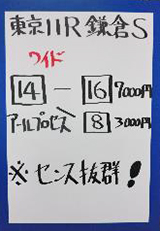 東京11R 鎌倉S
ワイド
14 － 16 7000円
アールプロセス 8 3000円
※ センス抜群！